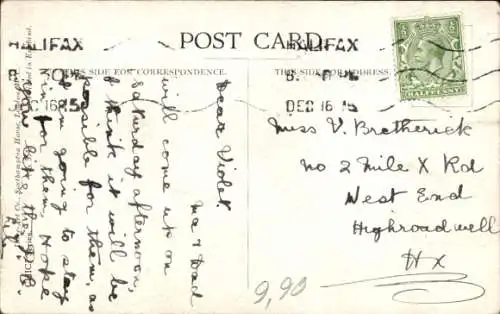 POST CARD.
THIS SIDE FOR CORRESPONDENCE.
THIS SIDE FOR ADDRESS.
HALIFAX
DEC 16 15
HALIFAX
DEC 16 15
HALFPENNY
Dear Violet.
Ma & Dad
will come up on
Saturday afternoon,
I think it will be
possible for them, as
I am going to stay
in for them, Hope
Miss V. Bretherick
No 2 Mile X Rd
West End
Highroadwell
Hx
9,90